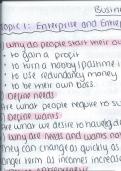 Busines
Topic 1: Enterprise and Entrep
Why do people start their own
• to gain a profit
• to turn a hobby/pastime i
• to use redundancy money
• to be their own boss.
Define needs
Are what people require to su
Define wants
Are what we desire to have (
Why are needs and wants no
They can change as quickly as
longer term as incomes increase